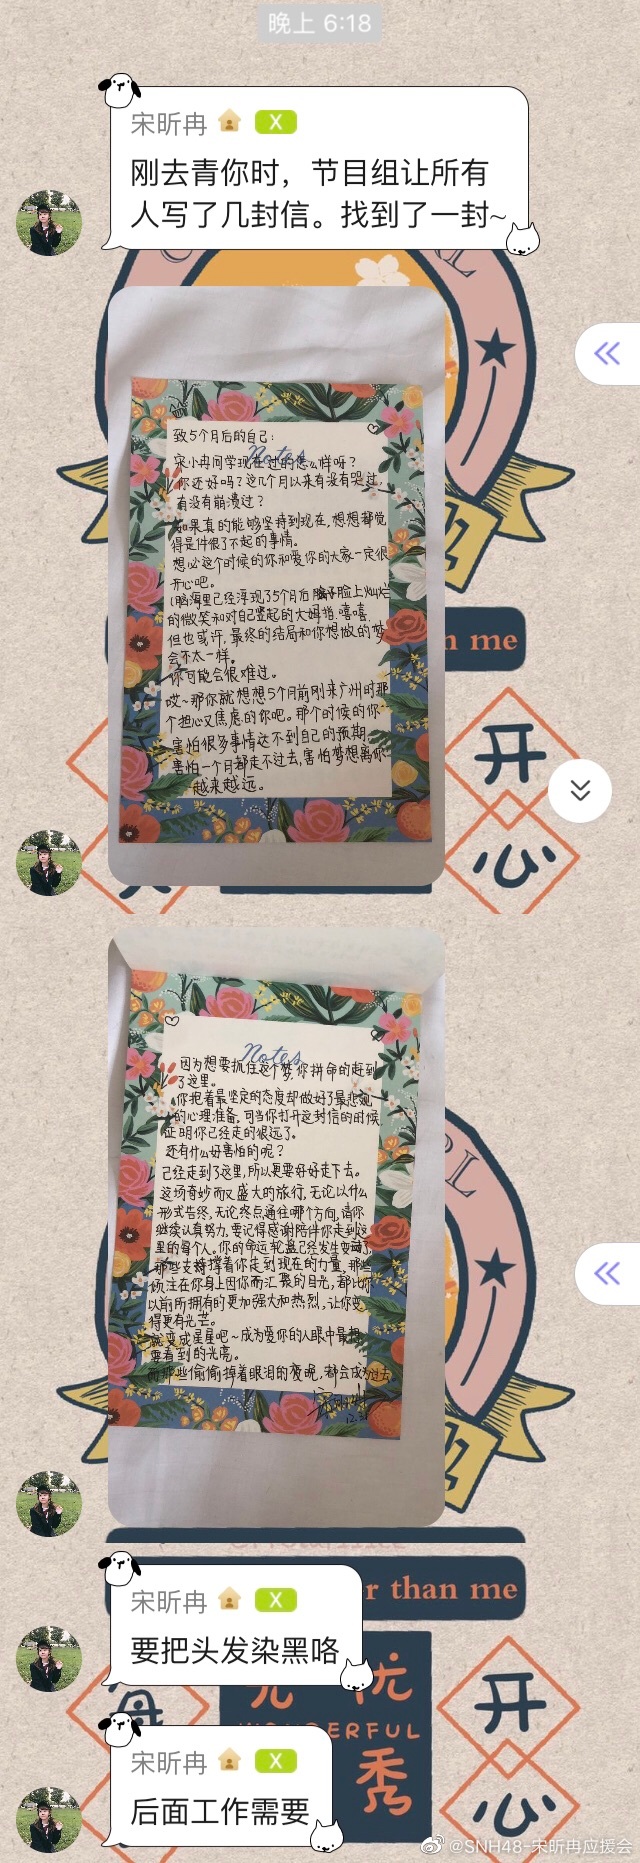 晚上 6:18
宋昕冉 X
刚去青你时，节目组让所有
人写了几封信。找到了一封~
Notes
致5个月后的自己：
宋小冉同学现在过的怎么样呀？
你还好吗？这几个月以来有没有哭过，
有没有崩溃过？
如果真的能够坚持到现在，想想都觉
得是件很了不起的事情。
想必这个时候的你和爱你的大家一定很
开心吧。
脑海里已经浮现了5个月后 脸上灿烂
的微笑和对自己竖起的大姆指，嘻嘻
但也或许，最终的结局和你想做的梦
会不太一样。
你可能会很难过。
哎~那你就想想5个月前刚来广州时那
个担心又焦虑的你吧。那个时候的你
害怕很多事情达不到自己的预期，
害怕一个月都走不过去，害怕梦想离你
越来越远。
n me
开
心
Notes
因为想要抓住这个梦，你拼命的赶到
了这里。
你抱着最坚定的态度却做好了最悲观
的心理准备。可当你打开这封信的时候
证明你已经走的很远了。
还有什么好害怕的呢？
已经走到了这里，所以更要好好走下去。
这场奇妙而又盛大的旅行，无论以什么
形式告终，无论终点通往哪个方向，请你
继续认真努力，要记得感谢陪伴你走到这
里的每个人。你的命运轮盘已经发生变动了，
那些支撑着你走到现在的力量，那些
倾注在你身上因你而汇聚的目光，都比你
以前所拥有时更加强大和热烈，让你变
得更有光芒。
就变成星星吧~成为爱你的人眼中最想
要看到的光亮。
而那些偷偷掉着眼泪的夜晚，都会成为过去
RL
r than me
宋昕冉 X
要把头发染黑咯
优
WONDERFUL
秀
开
心
宋昕冉 X
后面工作需要
@SNH48-宋昕冉应援会